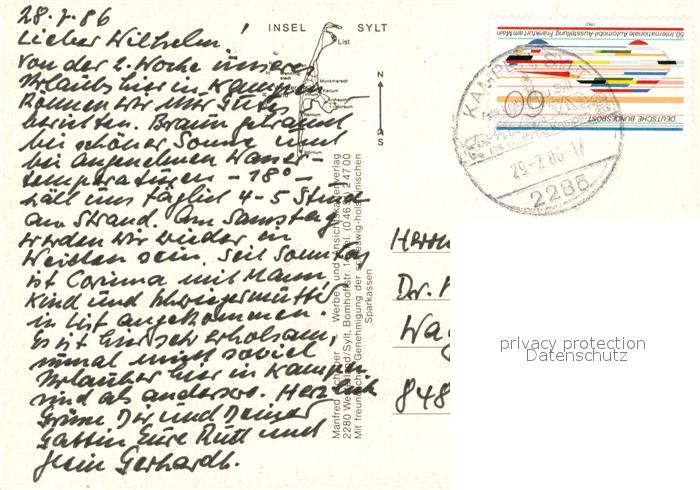 28.7.86
Lieber Wilhelm!
Von der 2. Woche unseres
Urlaubs hier in Kampen
können wir nur Gutes
berichten. Braun gebrannt
bei schöner Sonne und
bei angenehmen Wasser-
temperaturen - 18° -
hält uns täglich 4-5 Stunden
am Strand. Am Samstag
werden wir wieder in
Weiden sein. Seit Sonntag
ist Corinna mit Mann
Kind und Schwiegermutter
in List angekommen.
Es ist hier sehr erholsam,
zumal nicht soviel
Urlauber hier in Kampen
sind als anderswo. Herzliche
Grüße Dir und Deiner
Gattin Eure Rutt und
Gerhardt.
INSEL SYLT
List
Munkmarsch
Keitum
Hörnum
N
S
Manfred
Werbe- und Ansichtskartenverlag
2280 Westerland/Sylt, Bomhoffstr. Tel. (0 46 51) 2 47 00
Mit freundlicher Genehmigung der schleswig-holsteinischen
Sparkassen
50. Internationale Automobil-Ausstellung Frankfurt am Main
1983
60
DEUTSCHE BUNDESPOST
KAMPEN, SYLT
29.-7.86.17
2285
Herrn
Dr.
848
privacy protection
Datenschutz